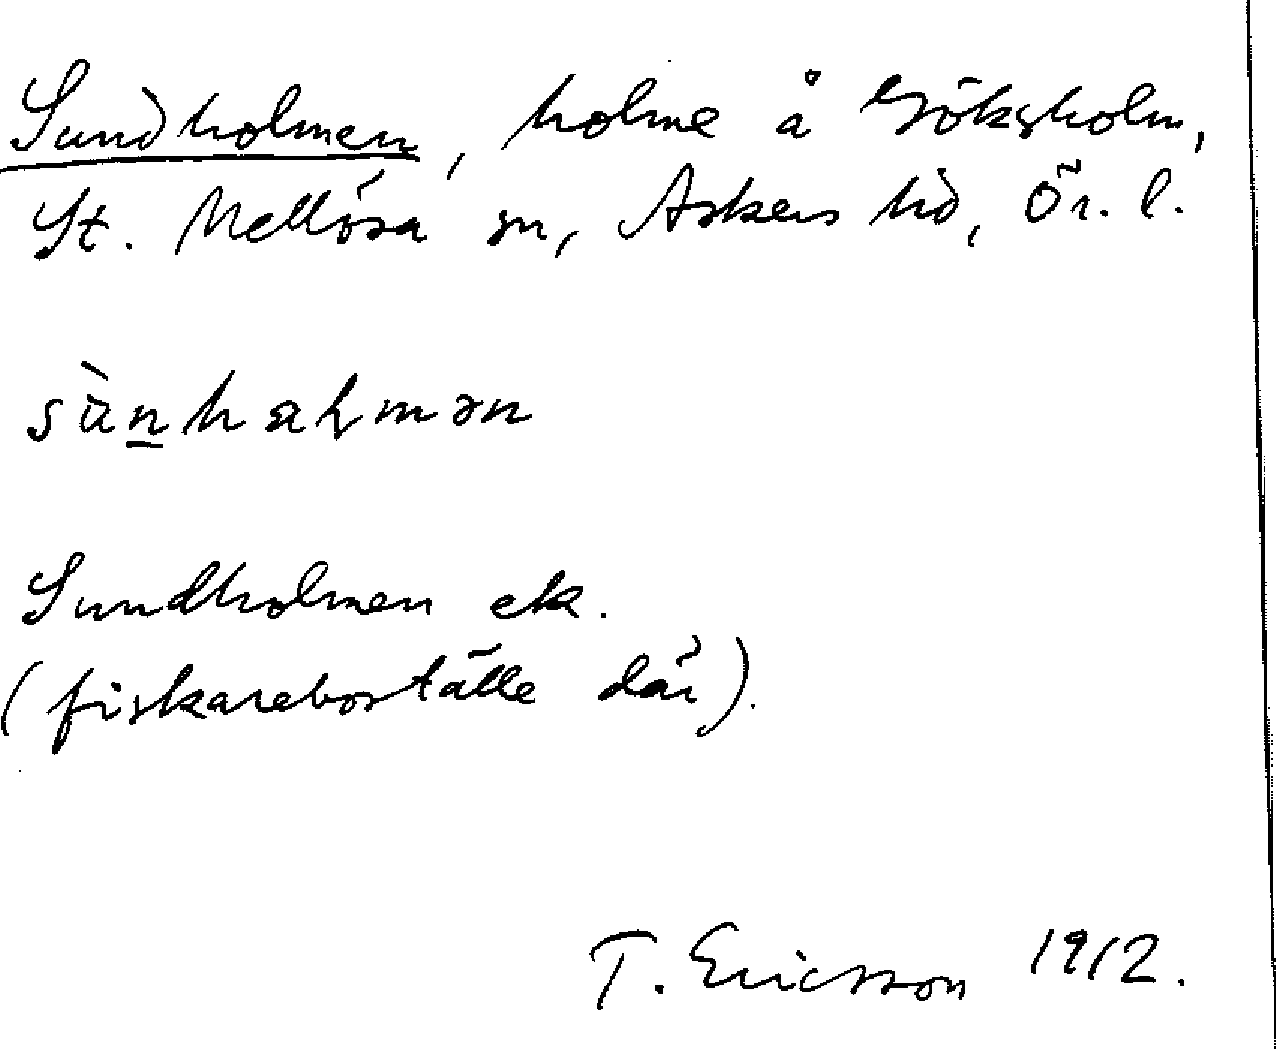 Sundholmen, holme å Göksholm,
St. Mellösa sn, Askers hd, Ör. l.
sùn̲haɫmən
Sundholmen ek.
(fiskareboställe där).
T. Ericsson 1912.